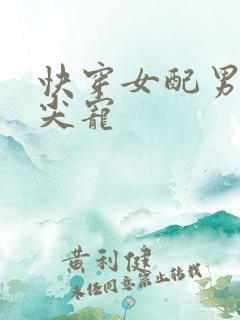 快穿女配男
尖宠
黄利健
未经同意禁止转载